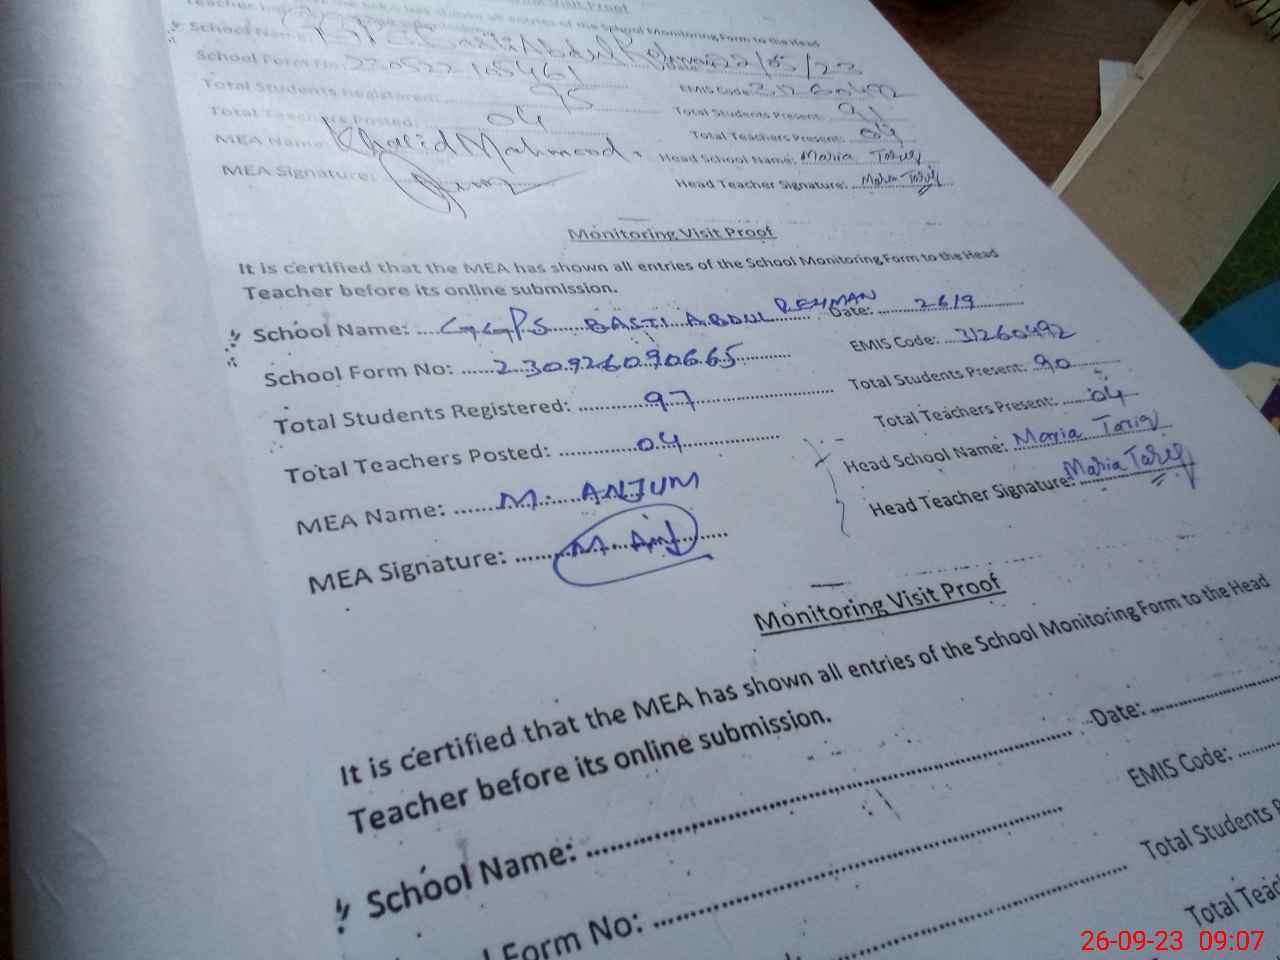 Visit Proof
Teacher entries of the School Monitoring Form to the Head
School Name: Basti Abdul Rehman 22/05/23
School Form No: 230522105461 EMIS Code: 31260492
Total Students Registered: 95 Total Students Present: 91
Total Teachers Posted: 04 Total Teachers Present: 04
MEA Name: Khalid Mahmood Head School Name: Maria Tariq
MEA Signature: Head Teacher Signature: Maria Tariq
Monitoring Visit Proof
It is certified that the MEA has shown all entries of the School Monitoring Form to the Head
Teacher before its online submission.
School Name: GGPS BASTI ABDUL REHMAN Date: 26/9
School Form No: 230926090665 EMIS Code: 31260492
Total Students Registered: 97 Total Students Present: 90
Total Teachers Posted: 04 Total Teachers Present: 04
MEA Name: M. ANJUM Head School Name: Maria Tariq
MEA Signature: M. Anj Head Teacher Signature: Maria Tariq
Monitoring Visit Proof
It is certified that the MEA has shown all entries of the School Monitoring Form to the Head
Teacher before its online submission.
School Name: Date:
Form No: EMIS Code:
Total Students
Total
26-09-23 09:07